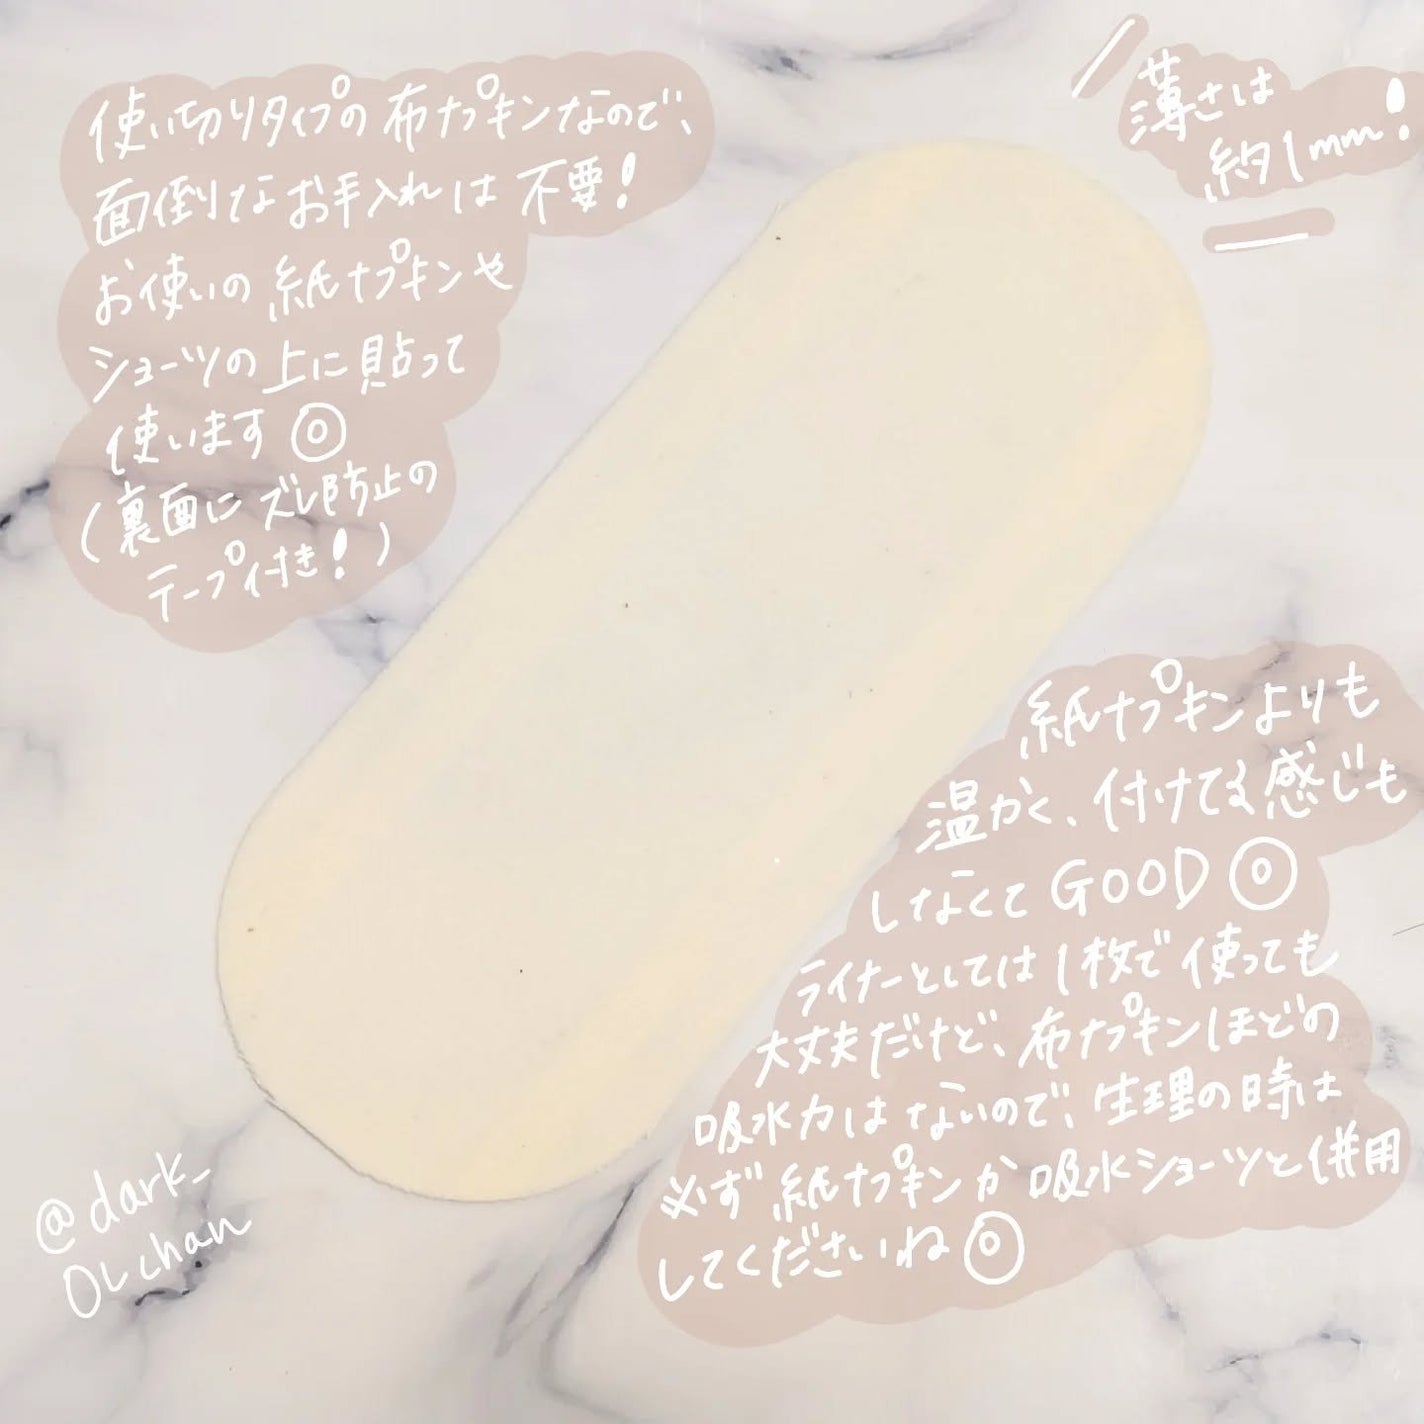 使い切りタイプの布ナプキンなので、
面倒なお手入れは不要!
お使いの紙ナプキンや
ショーツの上に貼って
使います◎
(裏面にズレ防止の
テープ付き!)
薄さは
約1mm!
紙ナプキンよりも
温かく、付けてる感じも
しなくてGOOD◎
ライナーとしては1枚で使っても
大丈夫だけど、布ナプキンほどの
吸水力はないので、生理の時は
必ず紙ナプキンか吸水ショーツと併用
してくださいね◎
@dark_
OLchan